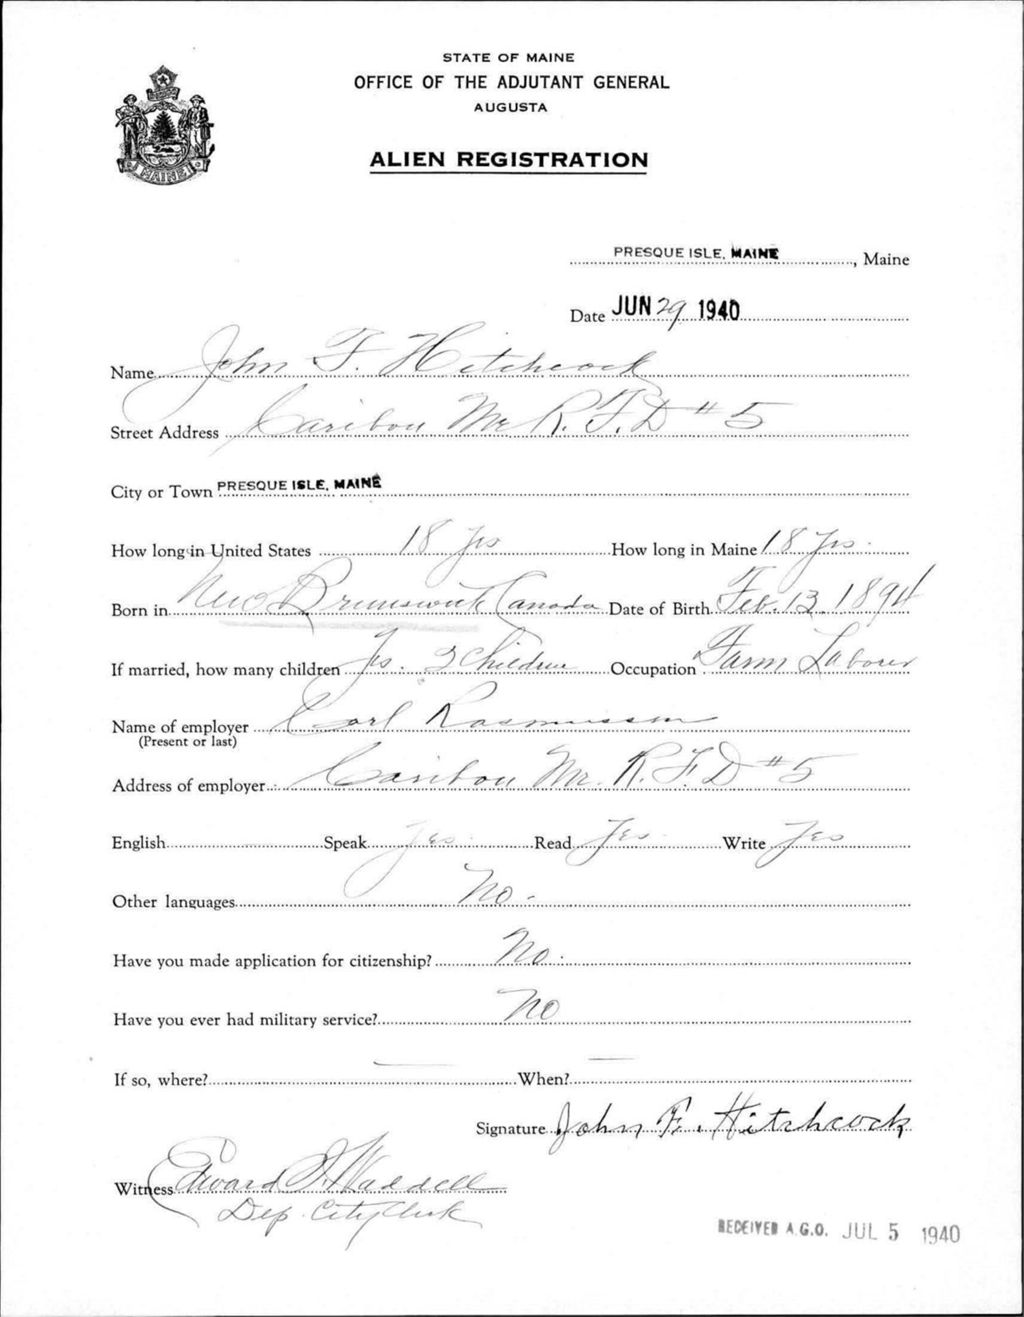 STATE OF MAINE
OFFICE OF THE ADJUTANT GENERAL
AUGUSTA
ALIEN REGISTRATION
MAINE
PRESQUE ISLE, MAINE, Maine
Date JUN 29 1940
Name John F. Hitchcock
Street Address Caribou Me R.F.D #5
City or Town PRESQUE ISLE, MAINE
How long in United States 18 yrs How long in Maine 18 yrs.
Born in New Brunswick Canada Date of Birth Feb. 13, 1894
If married, how many children Yes. Children Occupation Farm Laborer
Name of employer Carl Rasmussen
(Present or last)
Address of employer Caribou Me. R.F.D #5
English Speak Yes Read Yes Write Yes
Other languages No -
Have you made application for citizenship? No.
Have you ever had military service? No
If so, where? — When? —
Signature John F. Hitchcock
Witness Edward Waddell
Dep. City Clerk
RECEIVED A.G.O. JUL 5 1940